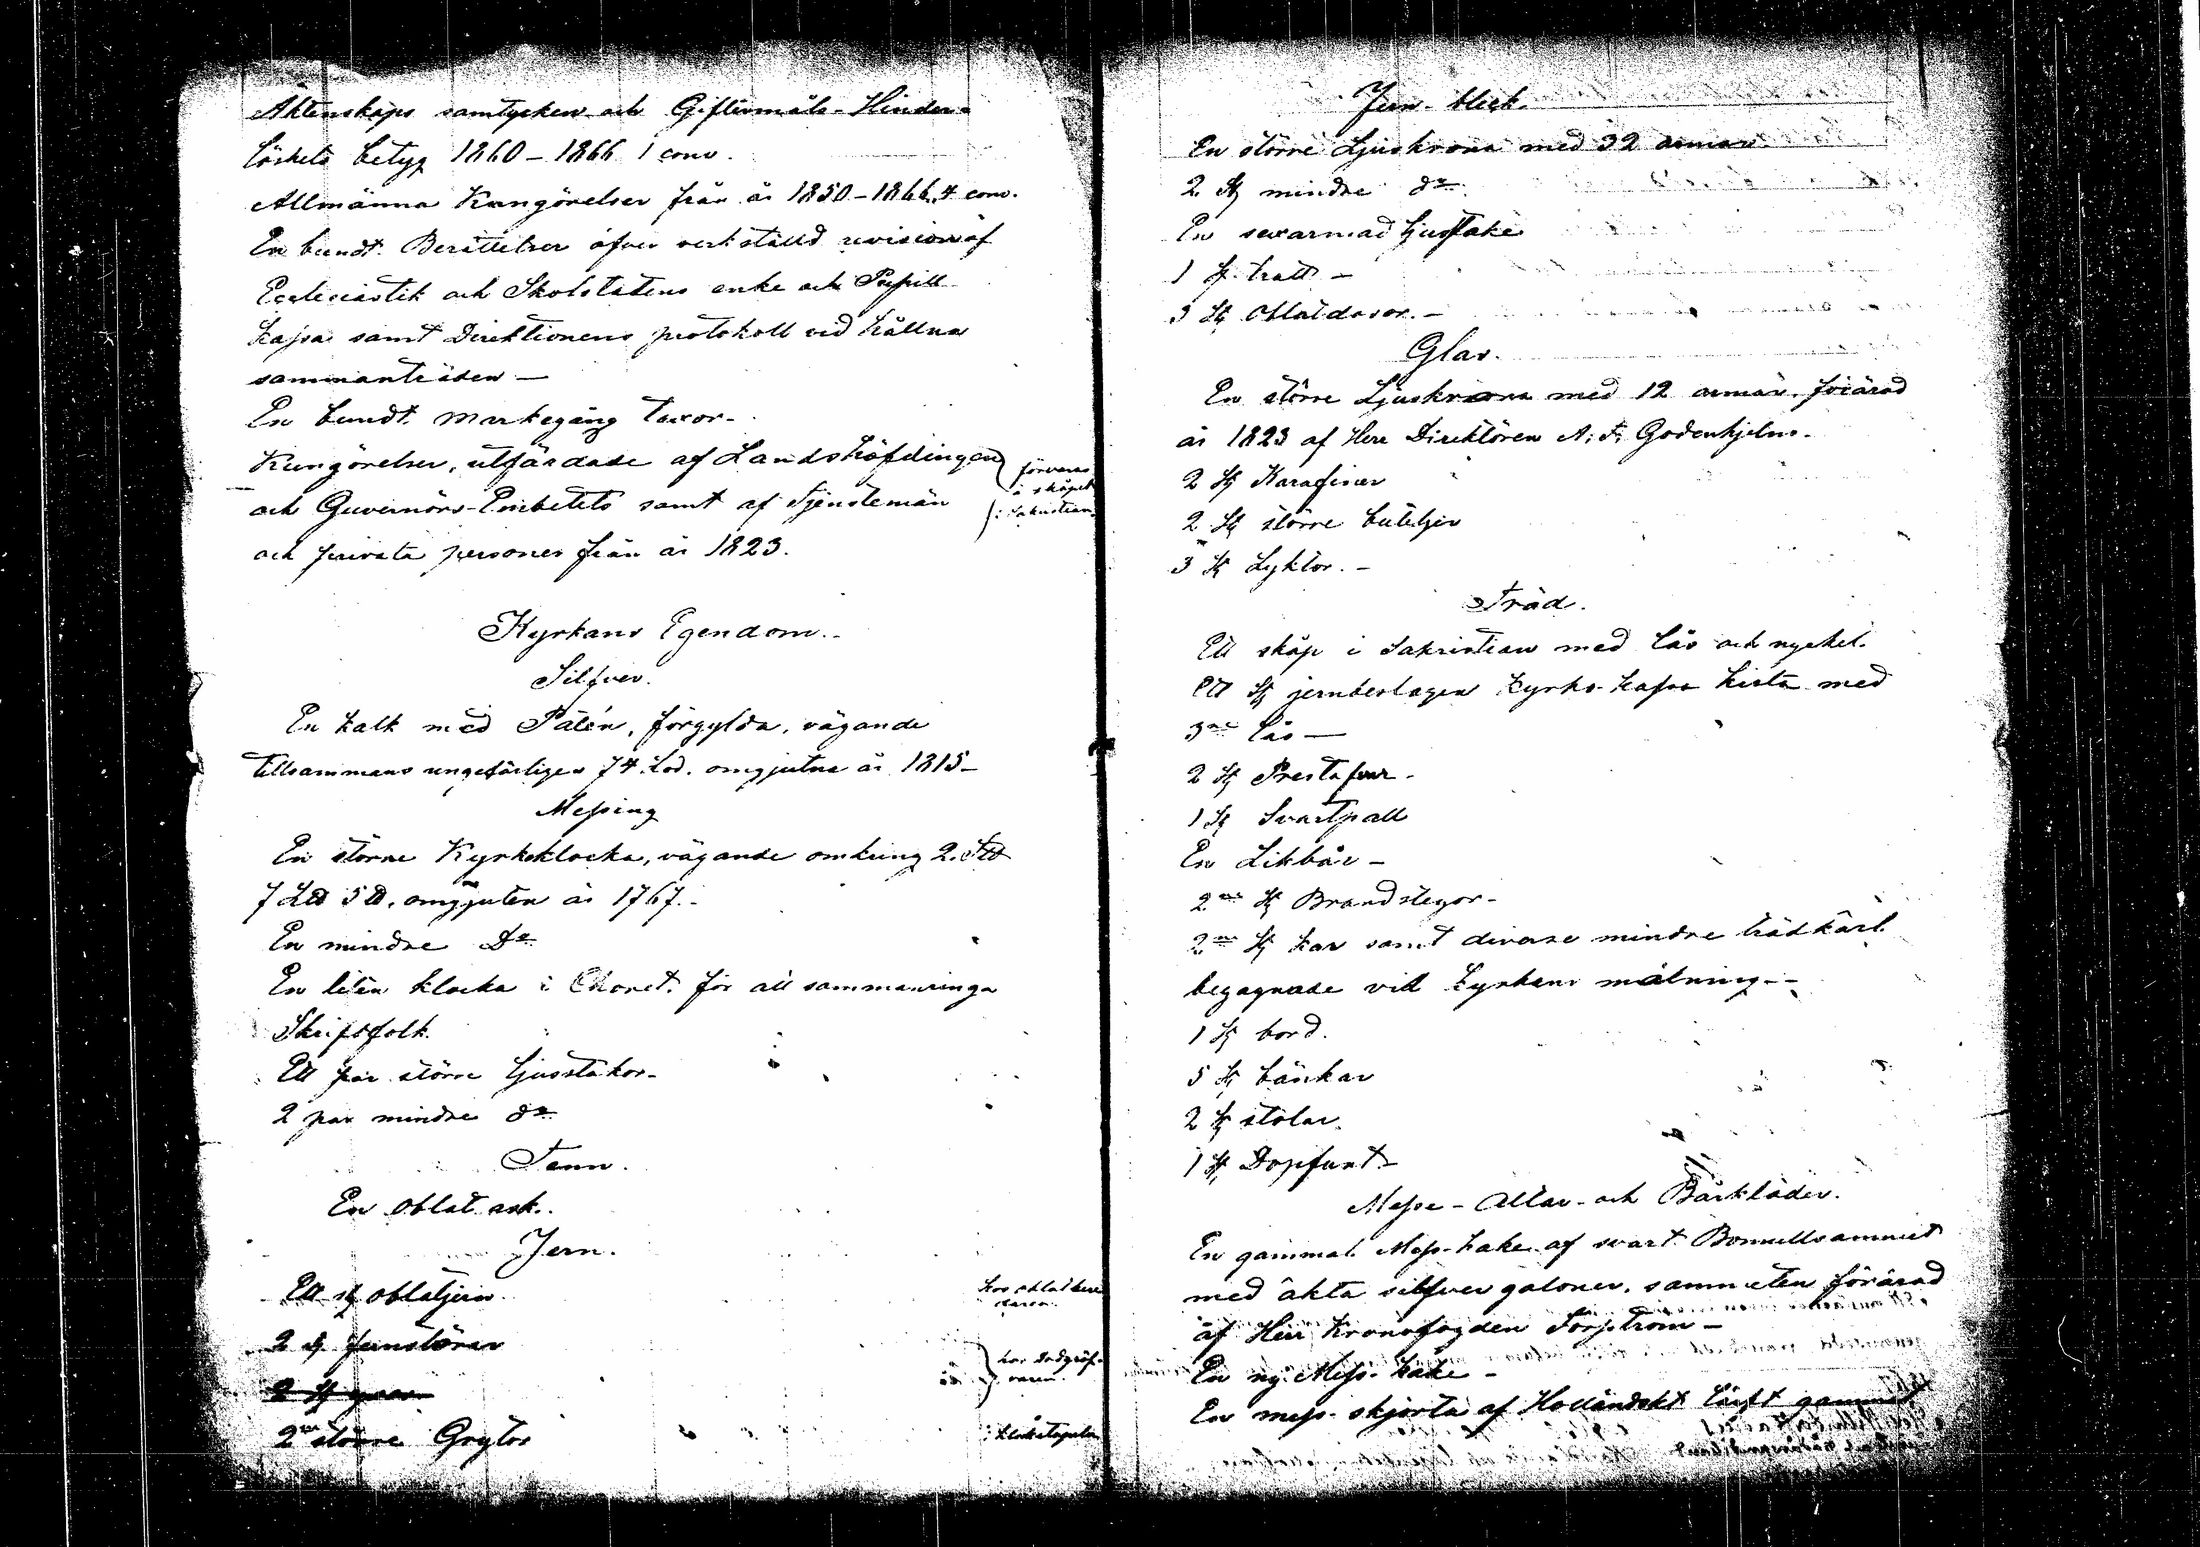 Äktenskaps samtycken och Giftermåls-Hinder-
löshets betyg 1860-1866 1 conv.
Allmänna Kungörelser från år 1850-1866, 4 conv.
En bundt Berättelser öfver verkställd revision af
Ecclesiastik och Skolstatens enke och Pupill
kassa samt Direktionens protokoll vid hållna
sammanträden —
En bundt markegång taxor-
Kungörelser, utfärdade af Landshöfdingen
och Guvernörs-Embetets samt af Tjenstemän
och privata personer från år 1823.
förvaras
i skåpet
i Sakristian
Kyrkans Egendom.-
Silfver.
En kalk med Patén, förgylda, vägande
tillsammans ungefärligen 74 Lod. omgjutna år 1815-
Messing
En större Kyrkoklocka, vägande omkring 2. S℔
7 L℔ 5 ℔. omgjuten år 1767.-
En mindre Do
En liten klocka i Choret. för att sammanringa
Skriftfolk.
Ett par större ljusstakar-
2 par mindre do
Tenn.
En Oblat ask.
Jern.
Ett st oblatjern
hos oblat
2 st jernstörar
2 st
hos Dodgräf-
varen
2ne större Grytor
i klåkstapeln
Jern-bleck.
En större Ljuskrona med 32 armar
2 St mindre do
En sexarmad ljustake
1 st. tratt -
3 St Oblatdosor. -
Glas.
En större Ljuskrona med 12 armar. förärad
år 1823 af Herr Direktören A. F. Godenhjelm.
2 St Karafiner
2 St större buteljer
3 St Lyktor. -
Träd.
Ett skåp i Sakristian med lås och nyckel.
Ett St jernbeslagen Kyrko-kassa kista med
3ne lås —
2 St Prestafvar -
1 St Svartpall
En Likbår -
2ne St Brandstegor -
2ne St kar samt diverse mindre trädkärl
begagnade vid Kyrkans målning.-
1 St bord.
5 St bänkar
2 St stolar.
1 St Dopfunt -
Messe - Altar - och Bårkläder.
En gammal Mess-hake af svart Bomullsammet
med äkta silfver galoner. sammeten förärad
af Herr Kronofogden Forsström -
En ny Mess-hake -
En mess-skjorta af Holländskt lärft gammal